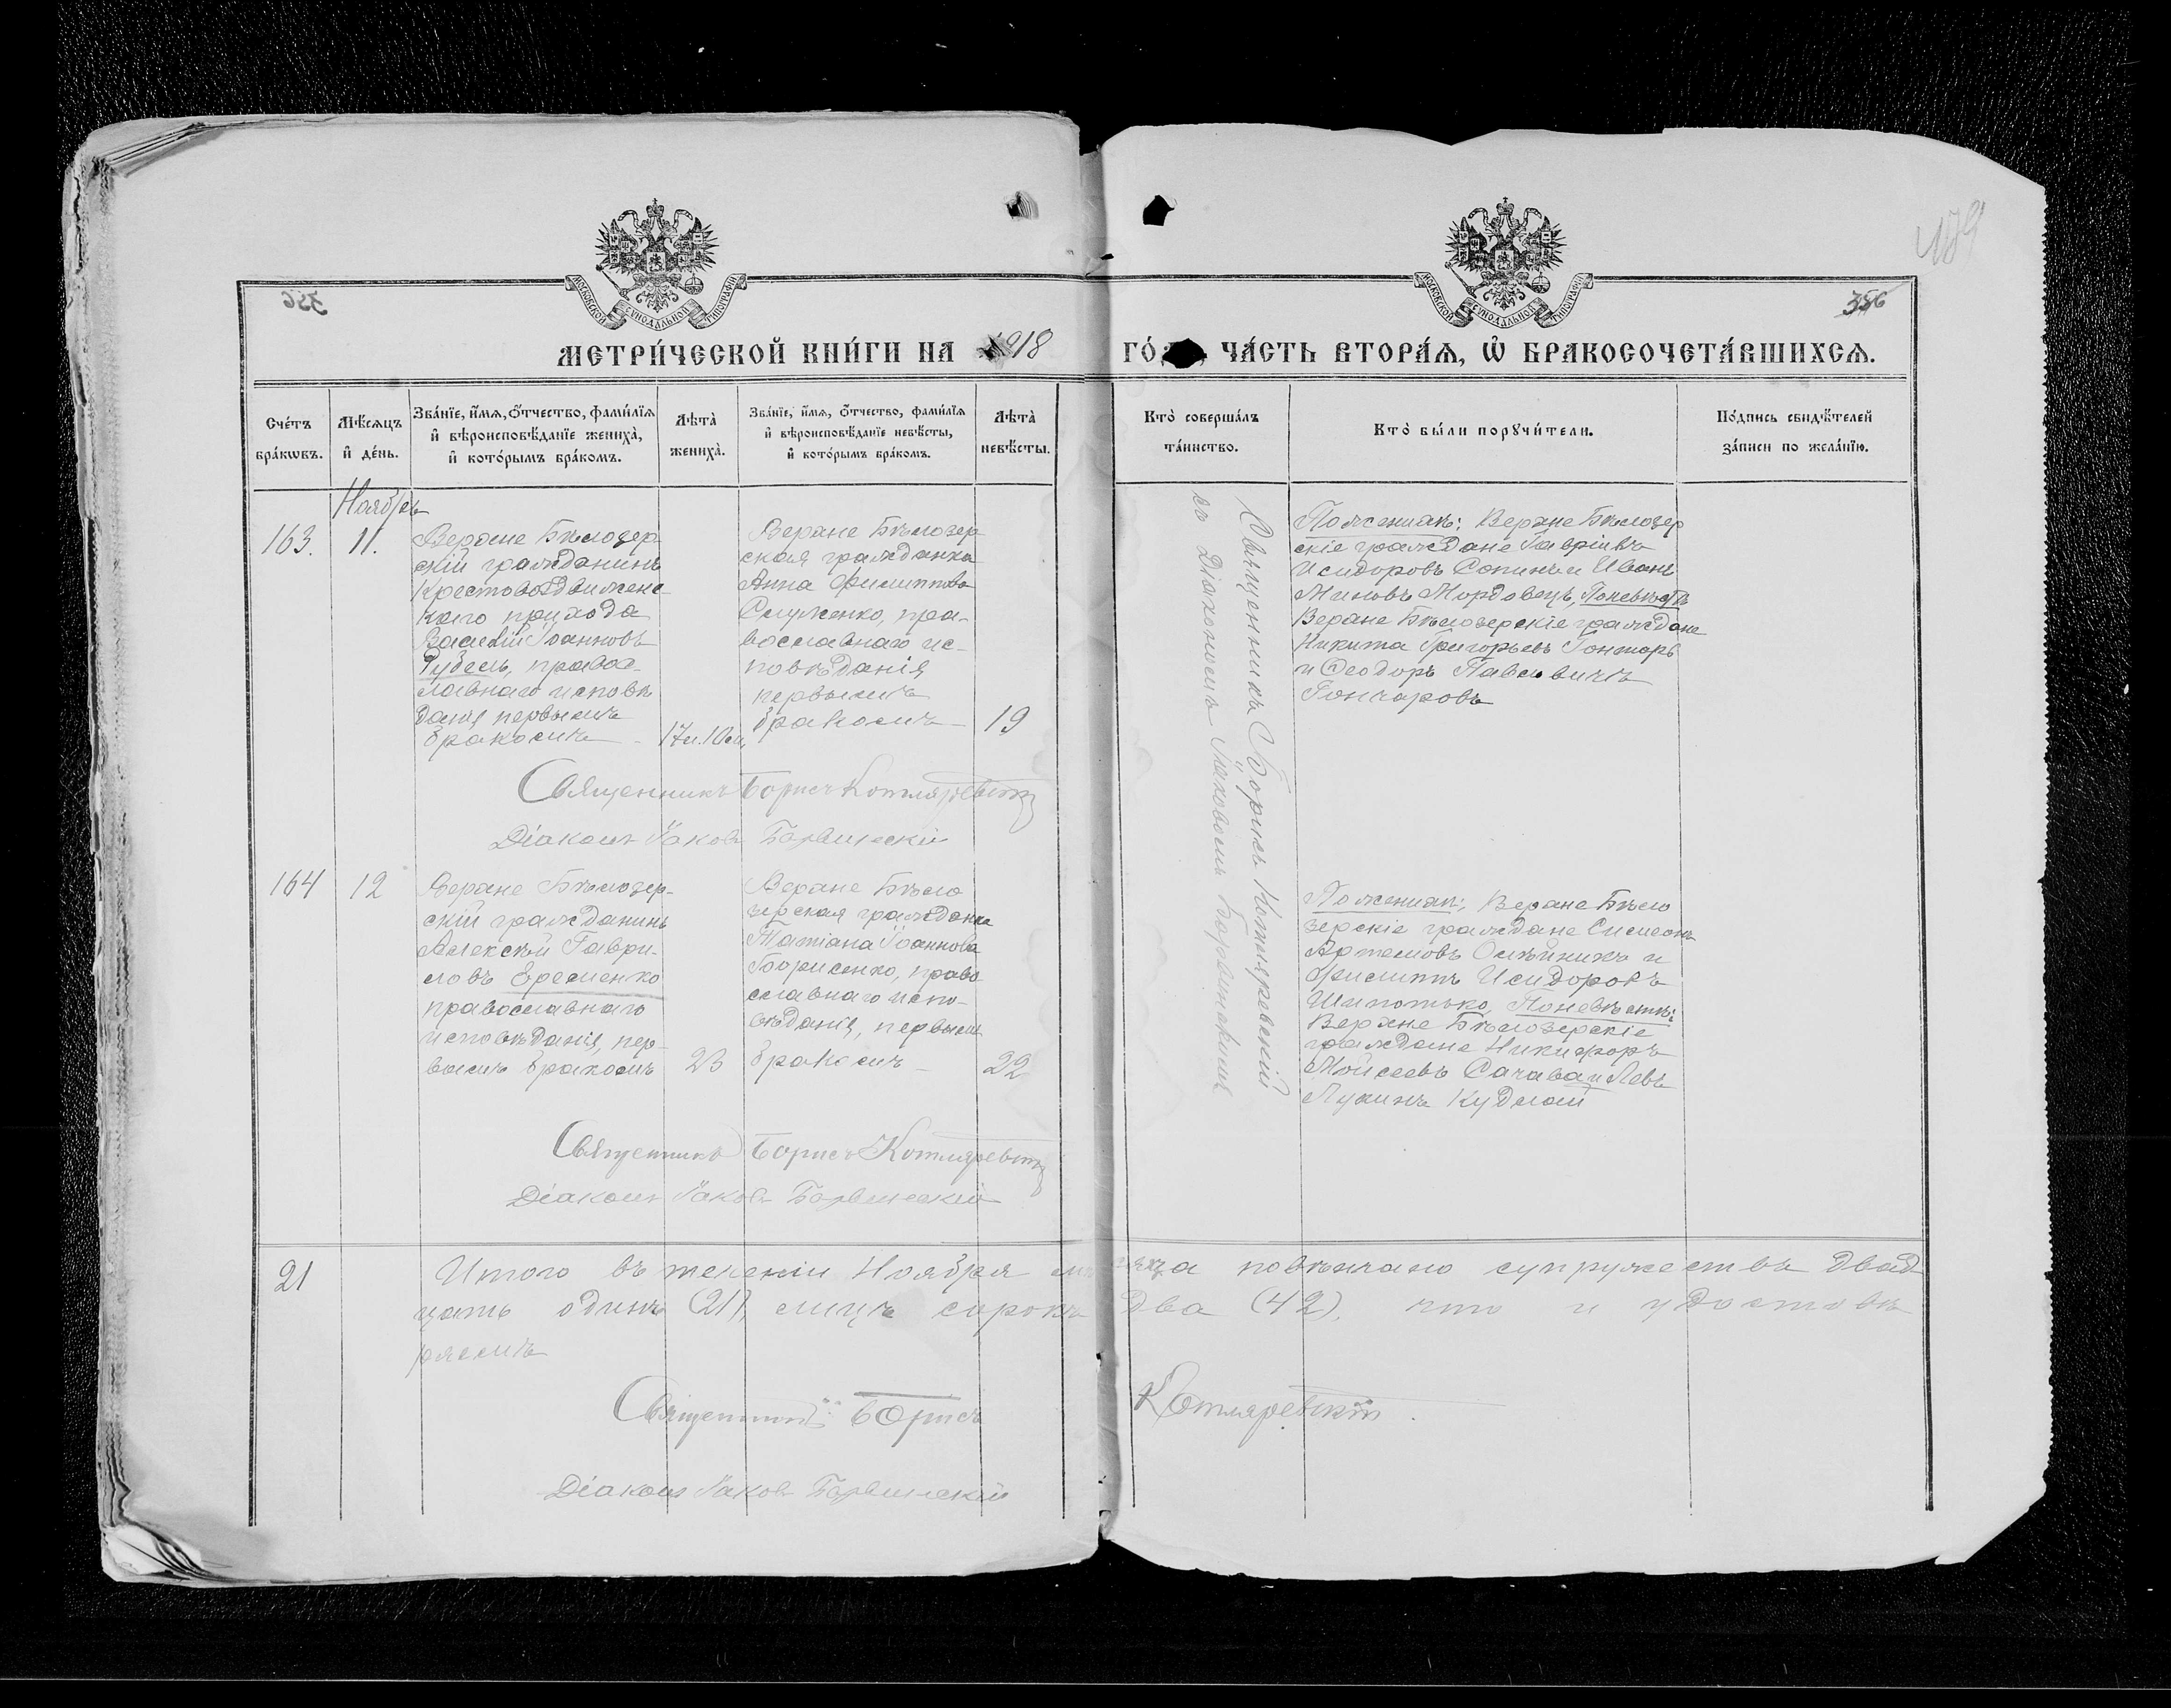 189
356
356
МОСКОВСКОЙ СѴНОДАЛЬНОЙ ТИПОГРАФІИ
МОСКОВСКОЙ СѴНОДАЛЬНОЙ ТИПОГРАФІИ
МЕТРИ́ЧЕСКОЙ КНИ́ГИ НА 1918
ГО́ ЧА́СТЬ ВТОРА́Ѧ, Ѡ҆ БРАКОСОЧЕТА́ВШИХСѦ.
Сче́тъ
бра́кѡвъ.
Мѣ́сѧцъ
и҆ де́нь.
Зва́нїе, и҆́мѧ, ѻ҆́тчество, фами́лїѧ
и҆ вѣроисповѣ́данїе жениха̀,
и҆ кото́рымъ бра́комъ.
Лѣ́та̀
жениха̀.
Зва́нїе, и҆́мѧ, ѻ҆́тчество, фами́лїѧ
и҆ вѣроисповѣ́данїе невѣ́сты,
и҆ кото́рымъ бра́комъ.
Лѣ́та̀
невѣ́сты.
Кто̀ соверша́лъ
та́инство.
Кто̀ бы́ли порꙋчи́тели.
По́дпись свидѣ́телей
за́писи по жела́нїю.
Ноябрь
163.
11.
Верхне Бѣлозер
скій гражданинъ
Крестовоздвиженс-
каго прихода
Василій Іоанновъ
Губель, правос-
лавнаго исповѣ
данія первымъ
бракомъ
17 л. 10 м,
Верхне Бѣлозер
ская гражданка
Анна Филиппова
Служенко, пра-
вославнаго ис-
повѣданія
первымъ
бракомъ
19
Священникъ Борисъ Котляревскій
съ Діакономъ Іаковомъ Барвинскимъ
По женихѣ: Верхне Бѣлозер
скіе граждане Гавріилъ
Исидоровъ Сопинъ и Иванъ
Миновъ Мордовецъ, По невѣстѣ
Верхне Бѣлозерскіе граждане
Никита Григорьевъ Гонтарь
и Ѳеодоръ Павловичъ
Гончаровъ
Священникъ Борисъ Котляревскій
Діаконъ Іаковъ Барвинскій
164
12
Верхне Бѣлозер-
скій гражданинъ
Алексѣй Гаври-
ловъ Еременко
православнаго
исповѣданія, пер-
вымъ бракомъ
23
Верхне Бѣло
зерская гражданка
Татіана Іоаннова
Борисенко, право
славнаго испо-
вѣданія, первымъ
бракомъ
22
По женихѣ: Верхне Бѣло
зерскіе граждане Симеонъ
Артемовъ Олѣйникъ и
Филиппъ Исидоровъ
Шипотько, По невѣстѣ:
Верхне Бѣлозерскіе
граждане Никифоръ
Мойсеевъ Сачава и Левъ
Лукинъ Кудлай
Священникъ Борисъ Котляревскій
Діаконъ Іаковъ Барвинскій
21
Итого въ теченіи Ноября мѣсяца повѣнчано супружествъ двад
цать одинъ (21), лицъ сорокъ два (42), что и удостовѣ
ряемъ
Священникъ Борисъ Котляревскій.
Діаконъ Іаковъ Барвинскій